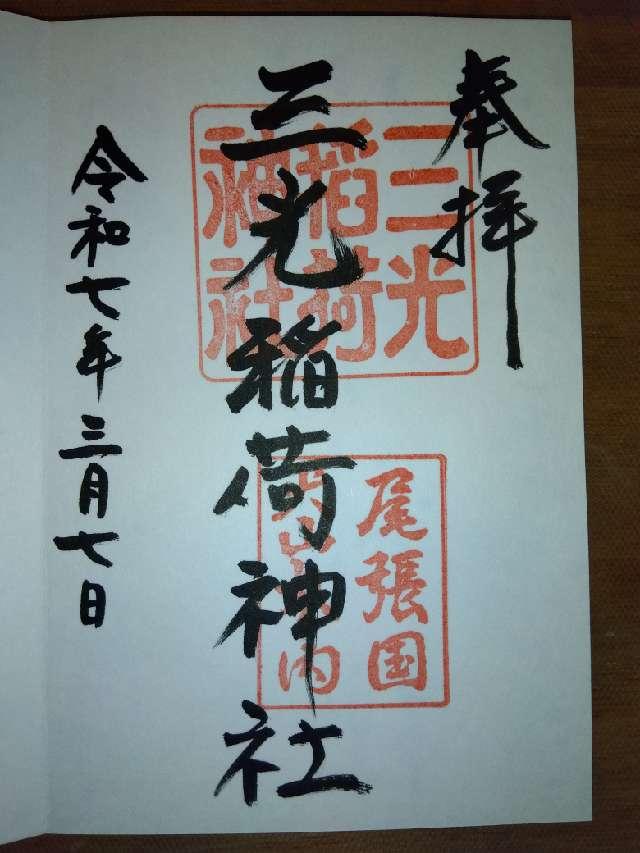 奉拝
三光稲荷神社
令和七年三月七日
三光
稲荷
神社
尾張国